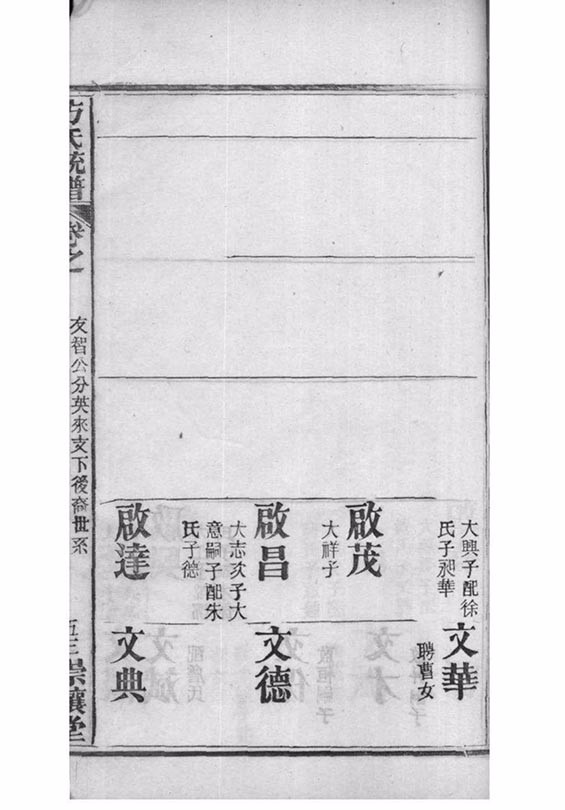 大興子配徐
氏子昶華
文華
聘曹女
啟茂
大祥子
啟昌
大志次子大
意嗣子配朱
氏子德
文德
啟達
文典
方氏統譜
卷之
友智公分英來支下後裔世系
崇讓堂